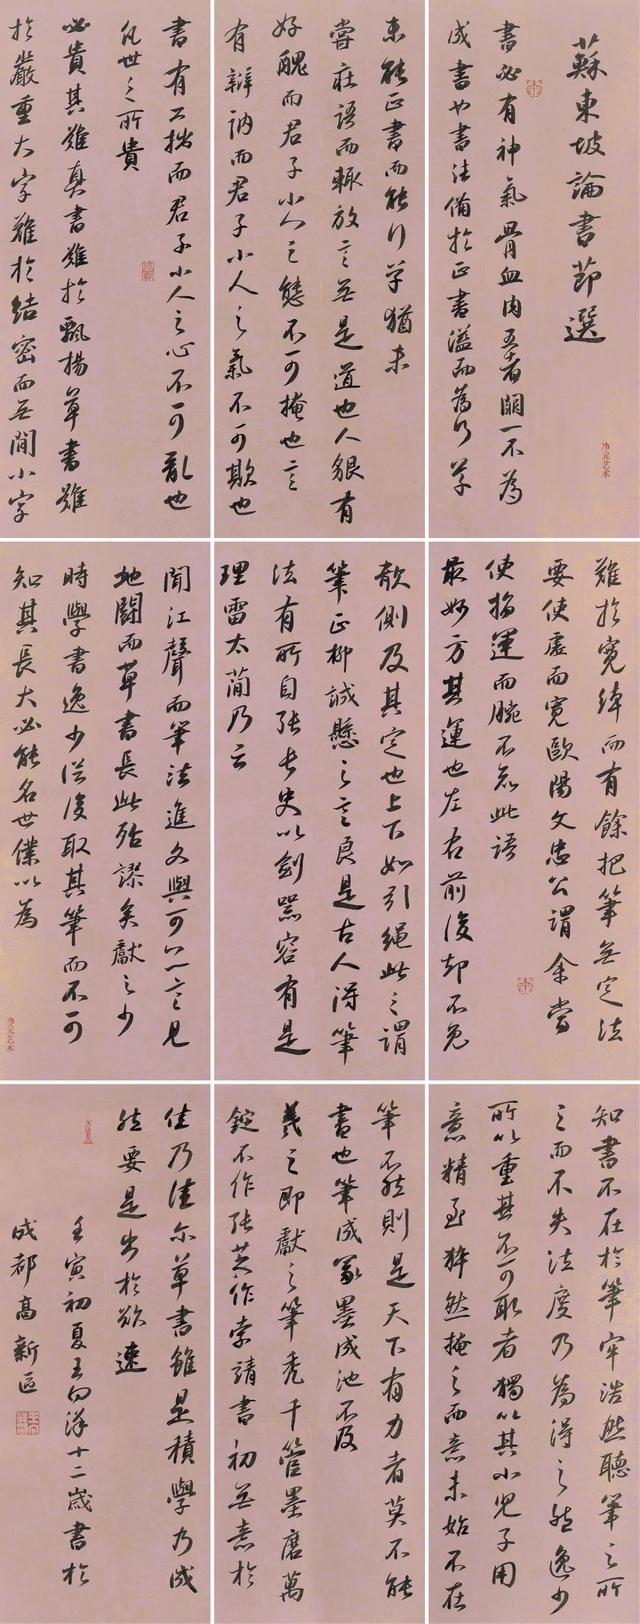 蘇東坡論書節選
書必有神氣骨血肉五者闕一不為
成書也書法備於正書溢而為行草
未能正書而能行草猶未
嘗莊語而輒放言無是道也人貌有
好醜而君子小人之態不可掩也言
有辯訥而君子小人之氣不可欺也
書有工拙而君子小人之心不可亂也
凡世之所貴
必貴其難真書難於飄揚草書難
於嚴重大字難於結密而無間小字
難於寬綽而有餘把筆無定法
要使虛而寬歐陽文忠公謂余當
使指運而腕不知此語
最妙方其運也左右前後却不免
欹側及其定也上下如引繩此之謂
筆正柳誠懸之言良是古人得筆
法有所自張長史以劍器容有是
理雷太簡乃云
聞江聲而筆法進文與可亦言見
蛇鬭而草書長此殆謬矣獻之少
時學書逸少從後取其筆而不可
知其長大必能名世僕以為
知書不在於筆牢浩然聽筆之所
之而不失法度乃為得之然逸少
所以重其不可取者獨以其小兒子用
意精至猝然掩之而意未始不在
筆不然則是天下有力者莫不能
書也筆成冢墨成池不及
羲之即獻之筆禿千管墨磨萬
錠不作張芝作索靖書初無意於
佳乃佳尔草書雖是積學乃成
然要是出於欲速
壬寅初夏王向洋十二歲書於
成都高新區